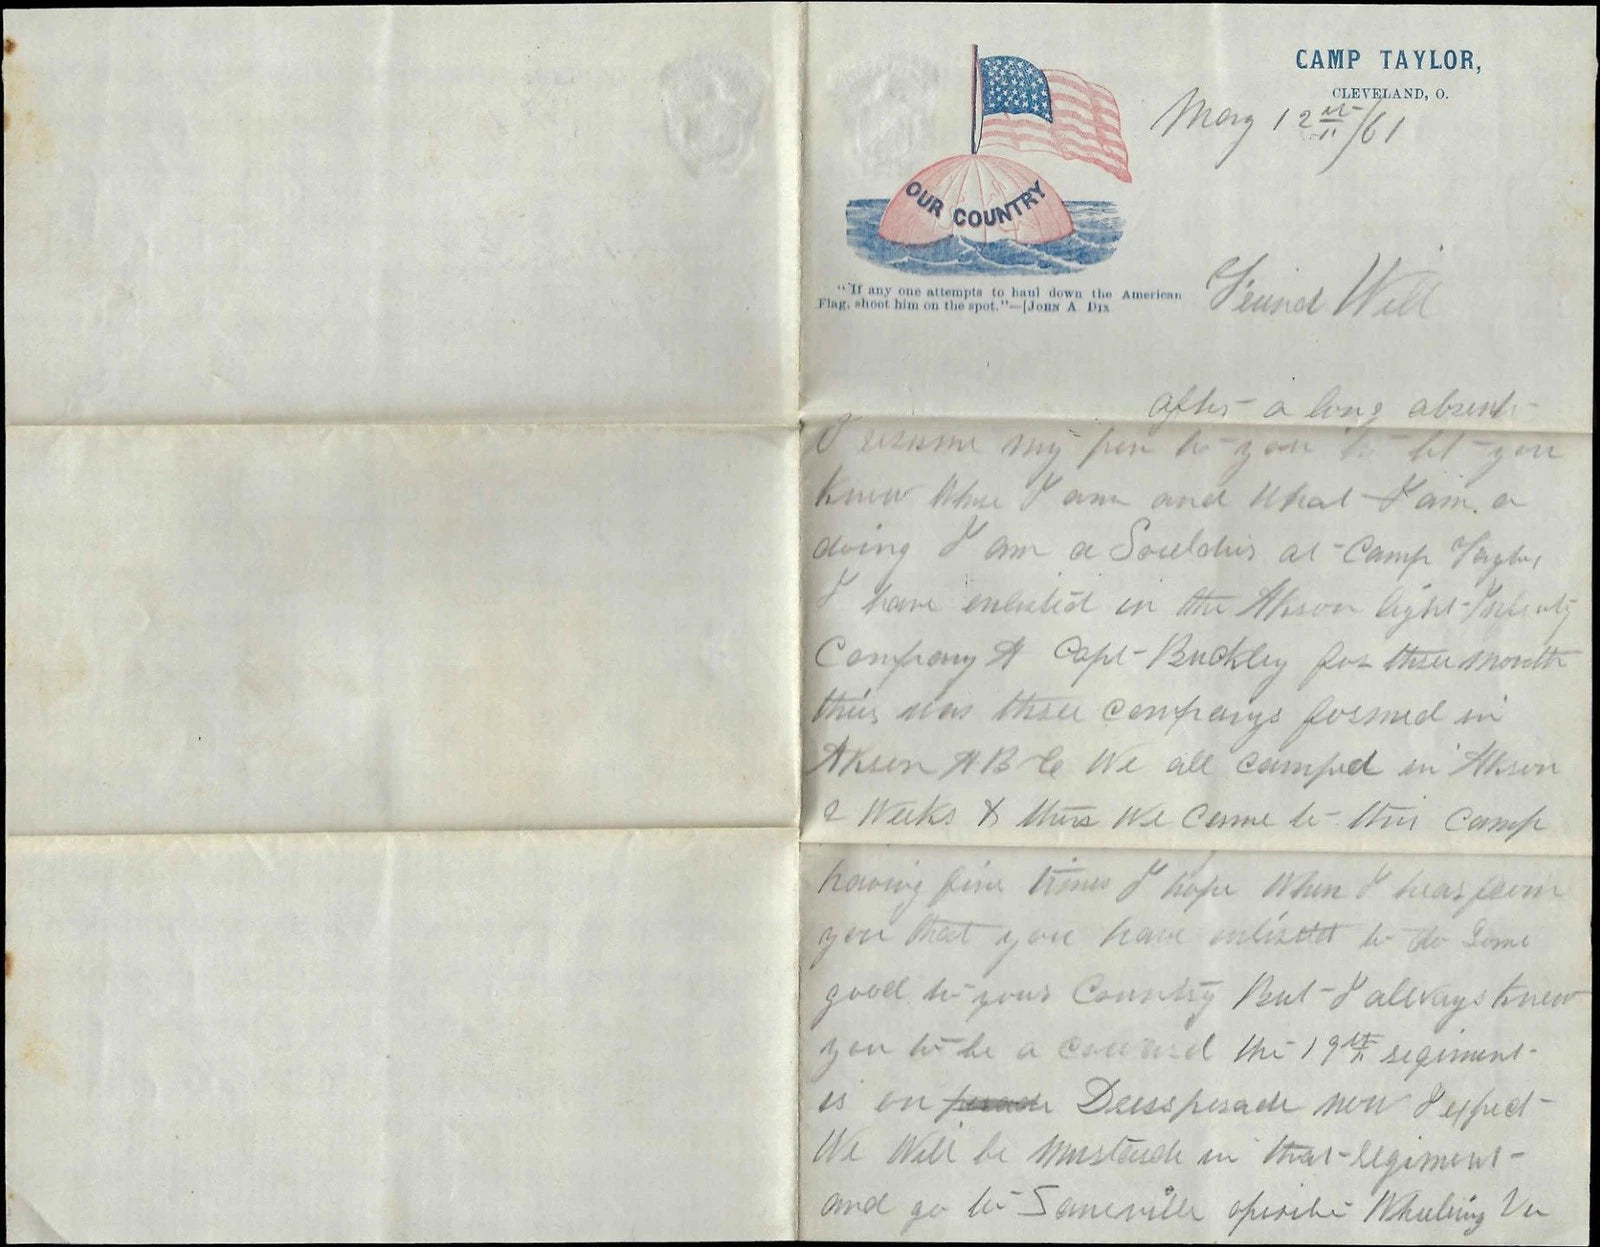 CAMP TAYLOR,
CLEVELAND, O.
May 12th/61
OUR COUNTRY
"If any one attempts to haul down the American
Flag, shoot him on the spot."—[JOHN A DIX
Freind Will
after a long absent
I resume my pen to you to let you
know whare I am and What I am a
doing I am a Souldier at Camp Taylor
I have enlisted in the Akron light Infenty
Company A Capt Buckley for three month
thier was three companys formed in
Akron A B C We all camped in Akron
2 Weeks & then We Came to this Camp
having fine times I hope When I hear from
you that you have enlisted to do Some
good to your Country But I allways knew
you to be a coward the 19th regiment
is on parade Dressperade now I expect
We Will be Musterde in that regiment
and go to opisite Wheeling Va